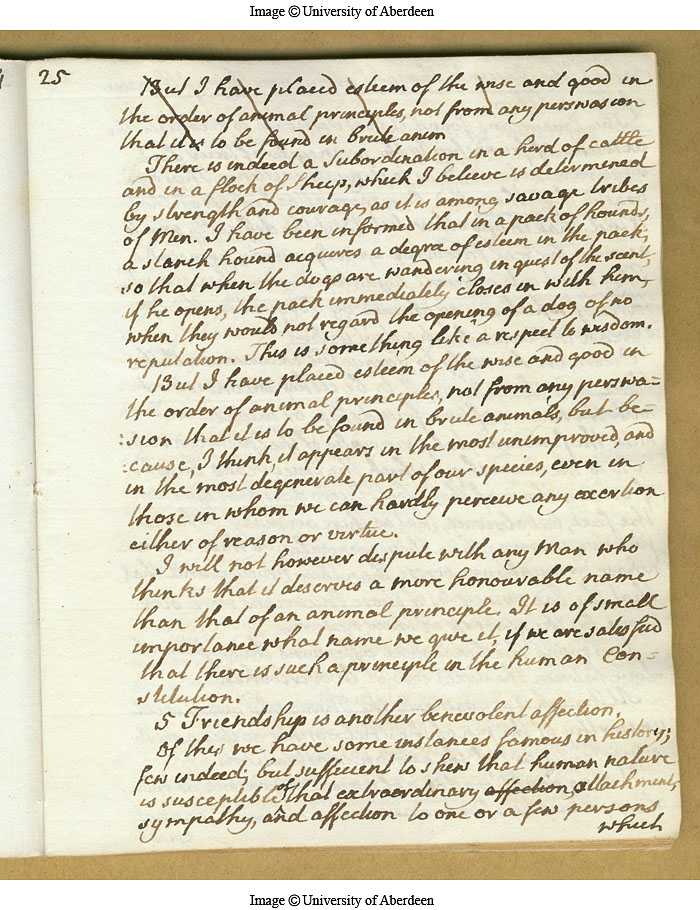 Image © University of Aberdeen
25
But I have placed esteem of the wise and good in
the order of animal principles, not from any perswasion
that it is to be found in brute anim
There is indeed a Subordination in a herd of cattle
and in a flock of Sheep, which I believe is determened
by strength and courage, as it is among savage tribes
of Men. I have been informed that in a pack of hounds,
a stanch hound acquires a degree of esteem in the pack;
so that when the dogs are wandering in quest of the scent,
if he opens, the pack immediately closes in with him,
when they would not regard the opening of a dog of no
reputation. This is something like a respect to wisdom.
But I have placed esteem of the wise and good in
the order of animal principles, not from any perswa=
:sion that it is to be found in brute animals, but be=
:cause, I think, it appears in the most unimproved, and
in the most degenerate part of our species, even in
those in whom we can hardly perceive any exertion
either of reason or virtue.
I will not however dispute with any Man who
thinks that it deserves a more honourable name
than that of an animal principle. It is of small
importance what name we give it, if we are satisfied
that there is such a principle in the human Con=
stitution.
5 Friendship is another benevolent affection,
Of this we have some instances famous in history;
few indeed; but sufficient to shew that human nature
is susceptible of that extraordinary affection, attachment,
sympathy, and affection to one or a few persons
which
Image © University of Aberdeen